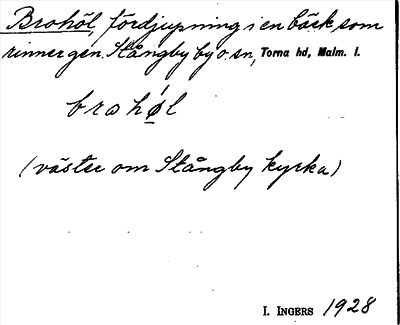 Brohöl, fördjupning i en bäck som
rinner gen. Stångby by o. sn, Torna hd, Malm. l.
brahǿ̣l
(väster om Stångby kyrka)
I. INGERS 1928